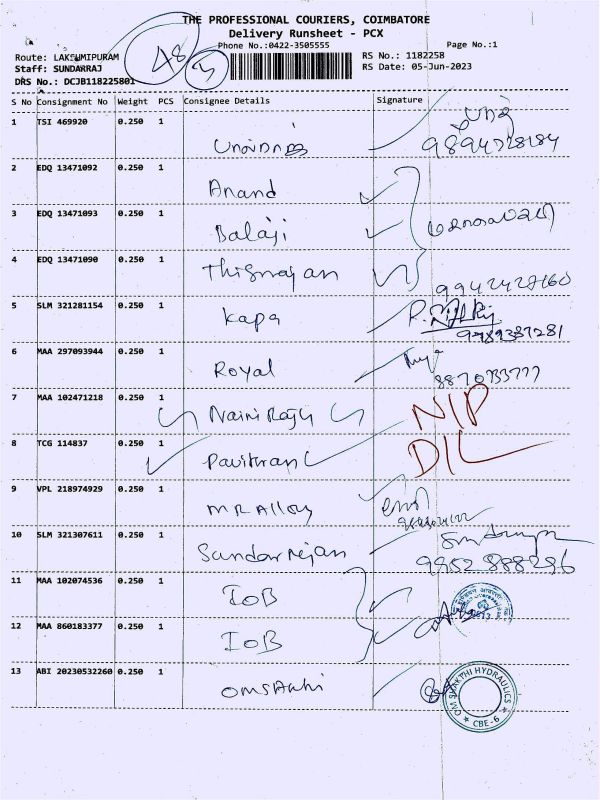 THE PROFESSIONAL COURIERS, COIMBATORE
Delivery Runsheet - PCX
Phone No.:0422-3505555 Page No.:1
Route: LAKSHMIPURAM RS No.: 1182258
Staff: SUNDARRAJ RS Date: 05-Jun-2023
DRS No.: DCJB118225801
48
S No Consignment No Weight PCS Consignee Details Signature
1 TSI 469920 0.250 1
9894728184
2 EDQ 13471092 0.250 1 Anand
3 EDQ 13471093 0.250 1 Balaji
4 EDQ 13471090 0.250 1
5 SLM 321281154 0.250 1 Kapa
6 MAA 297093944 0.250 1 Royal
7 MAA 102471218 0.250 1 NIP
8 TCG 114837 0.250 1 Pavithran DIL
9 VPL 218974929 0.250 1 MR Alloy
10 SLM 321307611 0.250 1 Sundarrajan
11 MAA 102074536 0.250 1 IOB
12 MAA 860183377 0.250 1 IOB
13 ABI 20230532260 0.250 1 OM Sakthi
OM SHAKTHI HYDRAULICS
★ CBE-6 ★